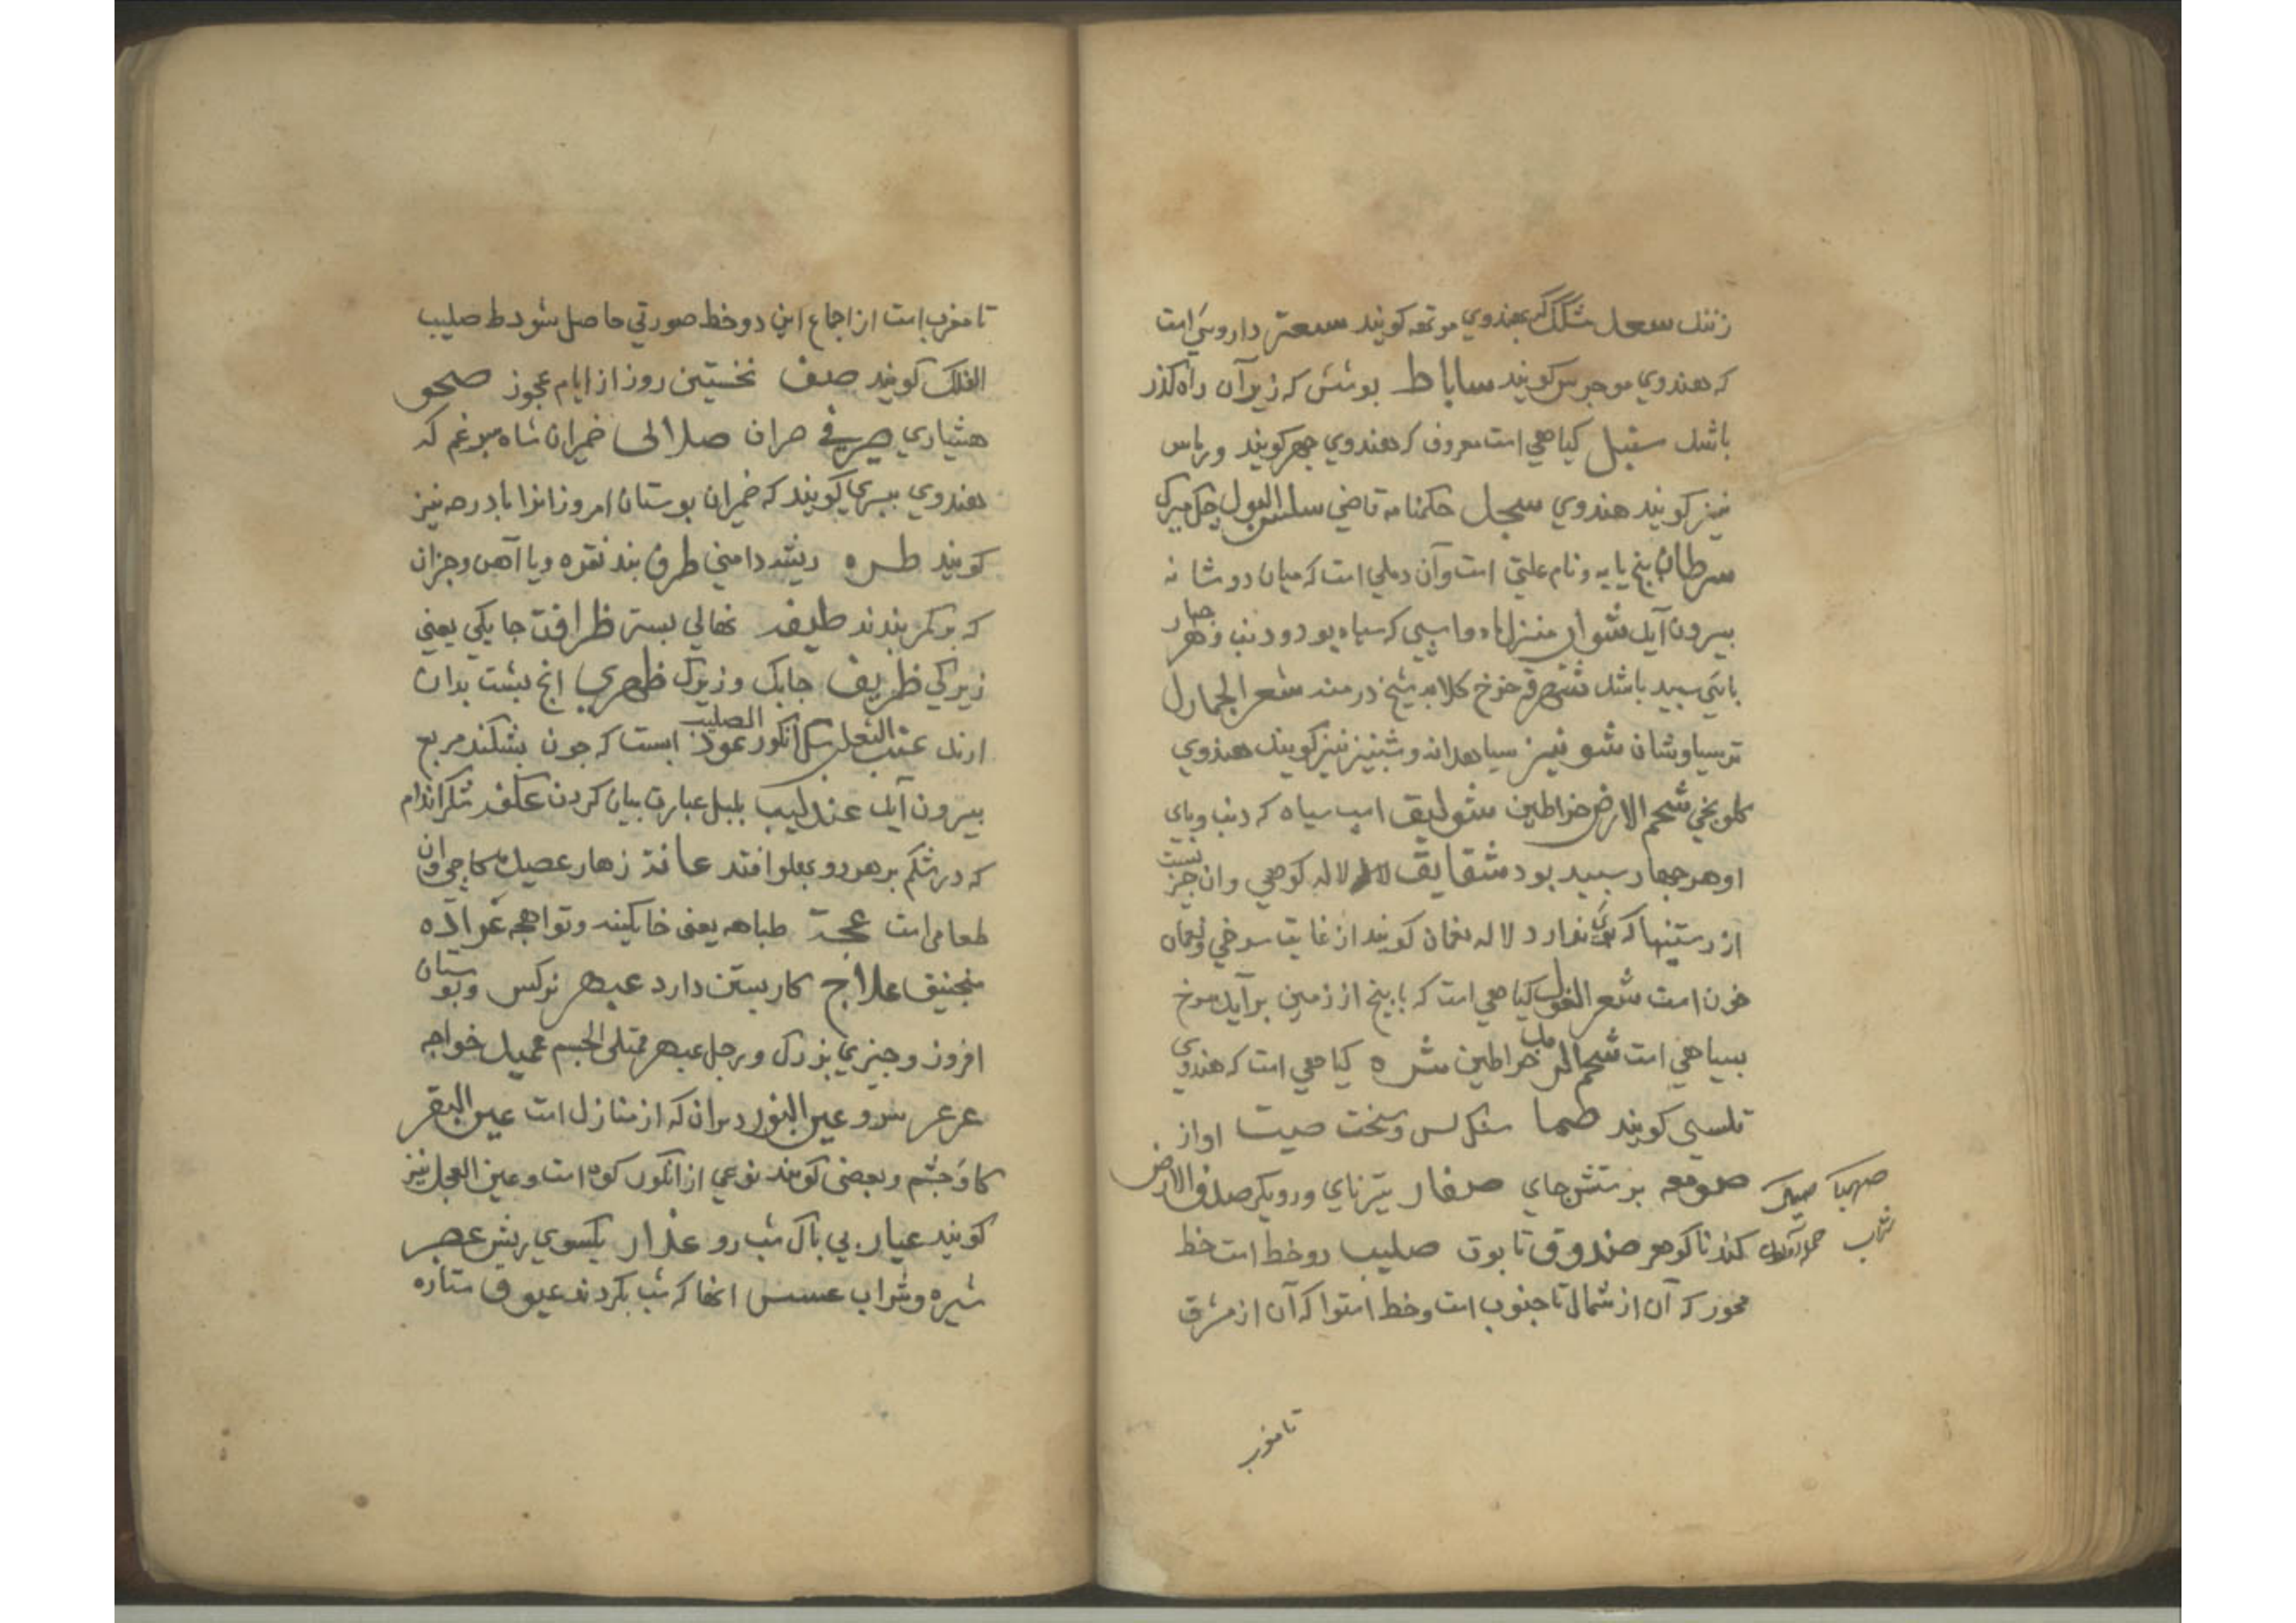 زنند سعد شکک که بهندوي موتهه کویند سعتر داروییَ است
که هندوي موجرس کویند ساباط بوشش که زیرآن راه کذر
باشد سنبل کیاهي است معروف که هندوي جهر کویند و رباس
نیز کویند هندوي سجل حکمنامه قاضي سلس البول چک میزک
سرطان پنج پایه و نام علتي است وآن دملي است که میان دو شانه
بیرون آید شوال منزل ماه و اسپی که سیاه بود و دنب و هر چهار
بایَي سبید باشد شقراق خزخ کلابه شیخ درمنه شعر الجبار ل
ترسیاوشان شونیز سیاهدانه و شبنیز نیز کویند هندوي
کلونجي شحم الارض خراطین شولیق اسپ سیاه که دنب وبای
او هر جهار سبید بود شقایق لاله کوهي وان جیز نیست
از رستنیها که بويَ ندارد لاله نعمان کویند از غایت سرخي ونعمان
خون است شعر الغول کیاهي است که با بیخ از زمین برآید سرخ
بسیاهي است شحم الرمل خراطین شره کیاهي است که هندوي
تلسي کویند صما سنک لس وسخت صیت اواز
صومعه برستش جاي صفار تیز ناي و رویکر صدف الارض
صهبا
شراب
کند ناکوهر صندوق تابوت صلیب دو خط است خط
محور که آن از شمال تا جنوب است وخط استوا که آن از مشرق
تا مغرب
تا مغرب است از اجماع این دو خط صورتي حاصل شود ط صلیب
الفلک کویند صنف نخستین روز از ایام عجوز صحو
هشیاري صیرفي صراف صلالی خمیران شاه سپرغم که
هندوي بیسري کویند که خمیران بوستان امروز انرا بادرهه نیز
کویند طره ریشه دامني طرف بند نقره ویا آهن وجزان
که بر کمر بندند طیفه نهالي بستر ظرافت جابکي یعني
زیرکي ظریف جابک و زیرک ظهري انج بشت بدان
ارند عنب الثعلب سک انکور عود الصلیب ابست که جون بشکند مربع
بیرون آید عندلیب بلبل عبارت بیان کردن عکنه شکر اندام
که در شکم بر هر دو بهلو افتد عانة زهار عصیده کاجي وان
طعامي است عجة طباهه یعني خاکینه وتواهجه عراده
منجنیق علاج کار بستن دارد عبهر نرکس وبوستان
افروز و جیزي بزرک و رجل عبهر ممتلی الجسم عمید خواجه
عرعر سرو عین الثور دبران که از منازل است عین البقر
کاوَ جشم و بعضي کویند نوعي از انکور کوه است وعین العجل نیز
کویند عیار بي باک شب رو عذار یکسوي ریش عصیر
شیره وشراب عسس انها که شب بکردند عیوق ستاره